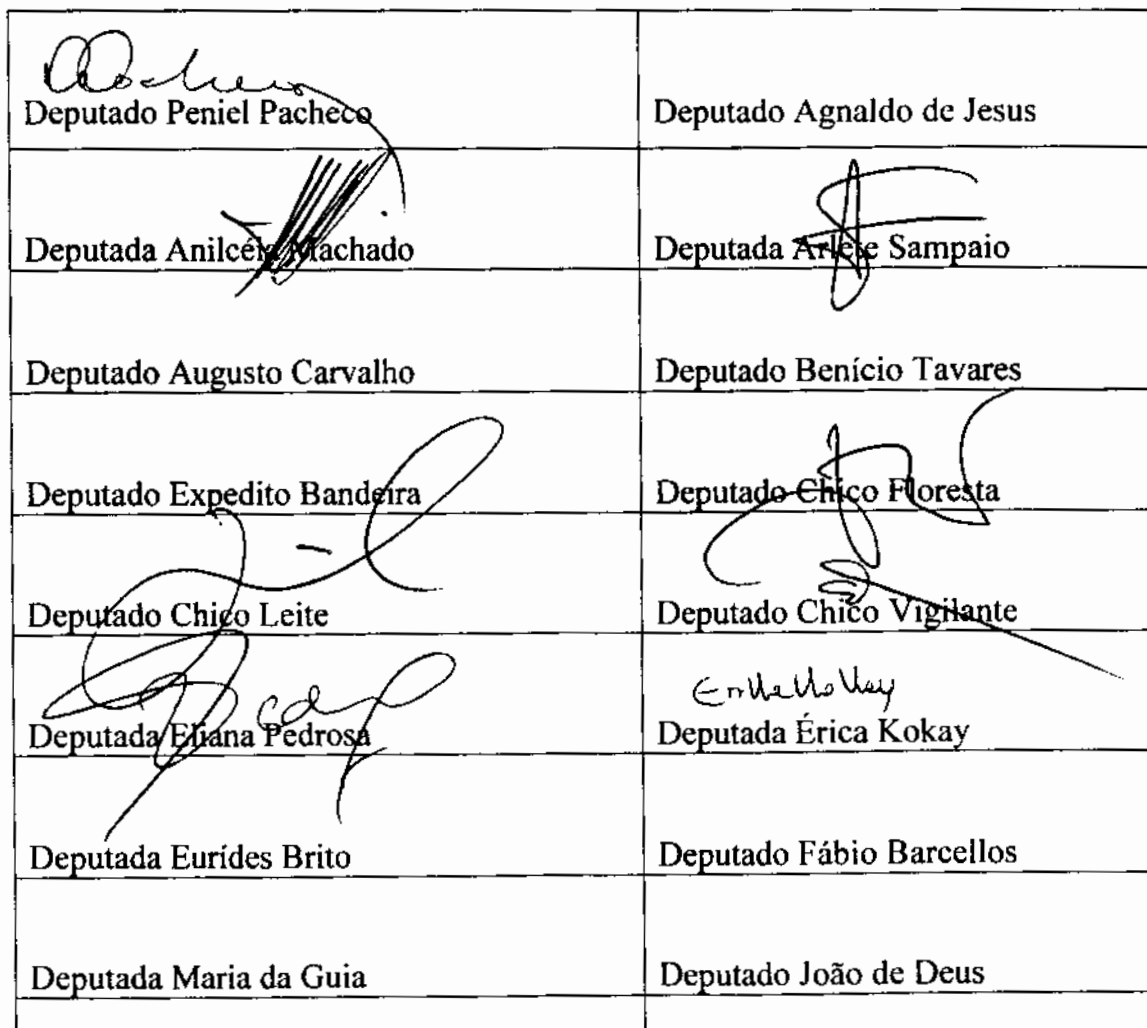 Deputado Peniel Pacheco
Deputado Agnaldo de Jesus
Deputada Anilcéia Machado
Deputada Arlete Sampaio
Deputado Augusto Carvalho
Deputado Benício Tavares
Deputado Expedito Bandeira
Deputado Chico Floresta
Deputado Chico Leite
Deputado Chico Vigilante
Deputada Eliana Pedrosa
Deputada Érica Kokay
Deputada Eurídes Brito
Deputado Fábio Barcellos
Deputada Maria da Guia
Deputado João de Deus